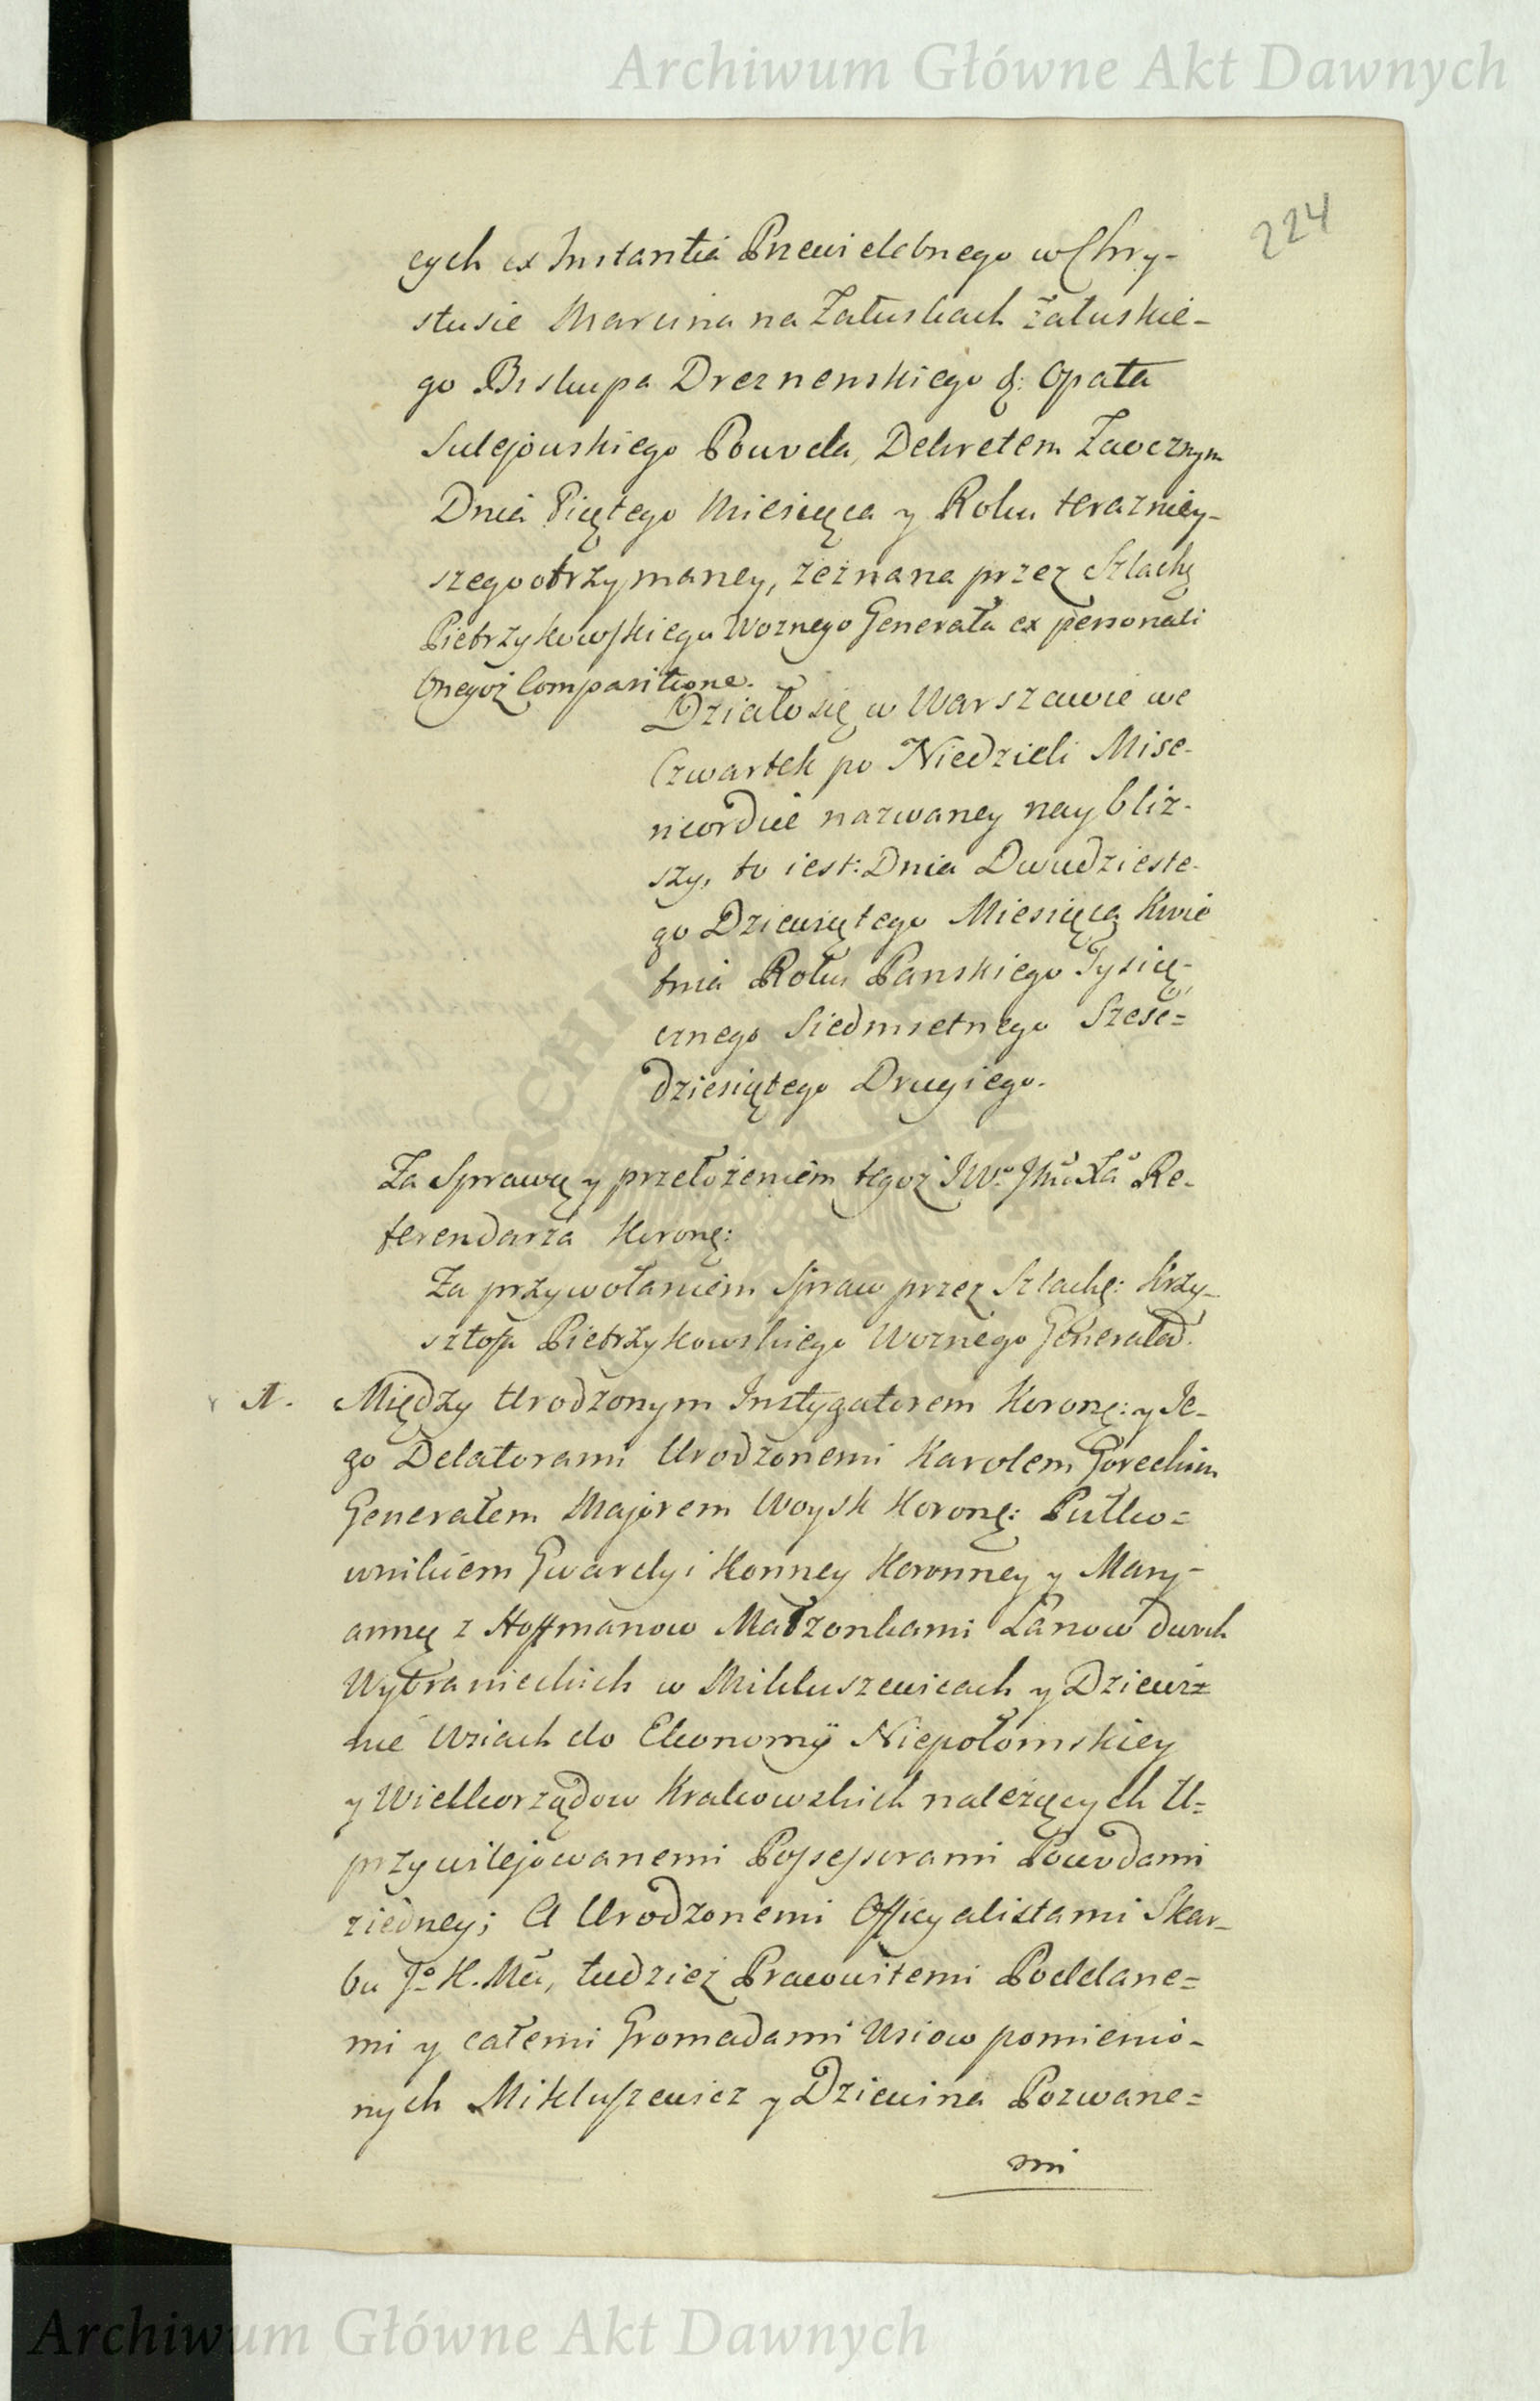 Archiwum Główne Akt Dawnych
224
cych ex Instantia Przewielebnego w Chry-
stusie Marcina na Załuskach Załuskie-
go Biskupa Dreznenskiego &: Opata
Sulejowskiego Powoda, Dekretem Zaocznym
Dnia Piątego Miesiąca y Roku teraznięy-
szego otrzymaney, zeznana przez Szlachę
Pietrzykowskiego Woznego Generała ex personali
Onegoż Comparitione.
Działo się w Warszawie we
Czwartek po Niedzieli Mise-
ricordiæ nazwaney naybliż-
szy, to iest: Dnia Dwudzieste-
go Dziewiątego Miesiąca Kwie
tnia Roku Panskiego Tysią-
cznego Siedmsetnego Sześć=
dziesiątego Drugiego.
Za Sprawą y przełożeniem tegoż JWo Re-
ferendarza Koronę:
Za przywołaniem Spraw przez Szlachę: Krzy-
sztofa Pietrzykowskiego Woznego Generała
A. Między Urodzonym Instygatorem Koronę: y Je-
go Delatorami Urodzonemi Karolem Goreckim
Generałem Majorem Woysk Koronę: Pułko=
wnikiem Gwardyi Konney Koronney y Mary-
anną z Hoffmanow Małzonkami Łanow dwoch
Wybranieckich w Mikluszewicach y Dziewi=
nie Wsiach do Ekonomÿ Niepołomskiey
y Wielkorządow Krakowskich należących U=
przywilejowanemi Possessorami Powodami
ziedney; A Urodzonemi Officyalistami Skar-
bu Jo K. Mci, tudzież Pracowitemi Poddane=
mi y całemi Gromadami Wsiow pomienio-
nych Mikluszewicz y Dziewina Pozwane=
mi
Archiwum Główne Akt Dawnych